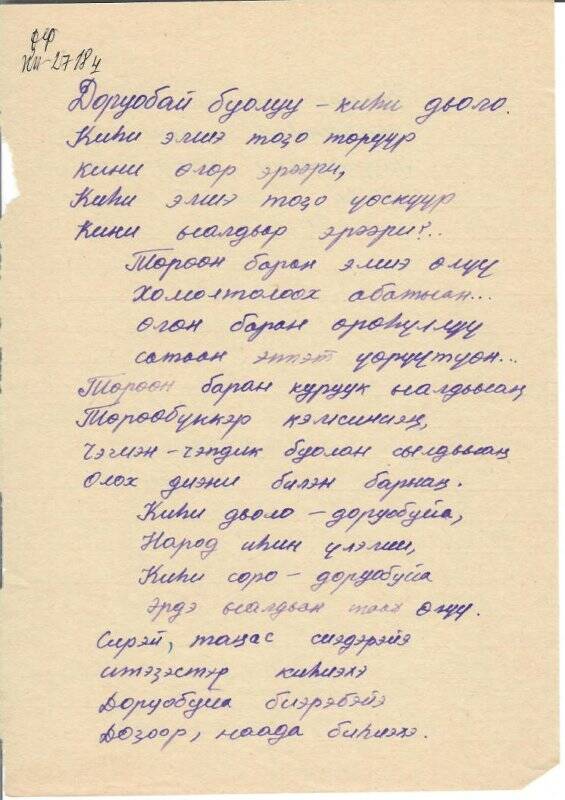 ФФ
КП-2718ц
Доруобай буолуу – киһи дьоло.
Киһи элиэ тоҕо төрүүр
кини өлөр эрээри,
Киһи элиэ тоҕо үөскүүр
Кини ыалдьар эрээри?..
Төрөөн баран элиэ өлүү
Хомолтолоох абатыан...
Өлөн баран өрөһүллүү
сатаан эппэт үөрүүтүөн...
Төрөөн баран куруук ыалдьыаҥ
Төрөөбүккэр кэмсиниэҥ,
Чэгиэн-чэпчик буолан сылдьыаҥ
Олох диэни билэн барыаҥ.
Киһи дьоло – доруобуйа,
Народ иһин үлэлии,
Киһи соро – доруобуйа
Эрдэ ыалдьан таах өлүү.
Сирэй, таҥас сиэдэрэйэ
итэҕэстэр киһиэхэ
Доруобуйа биэрэбэйэ
Доҕоор, наада биһиэхэ.